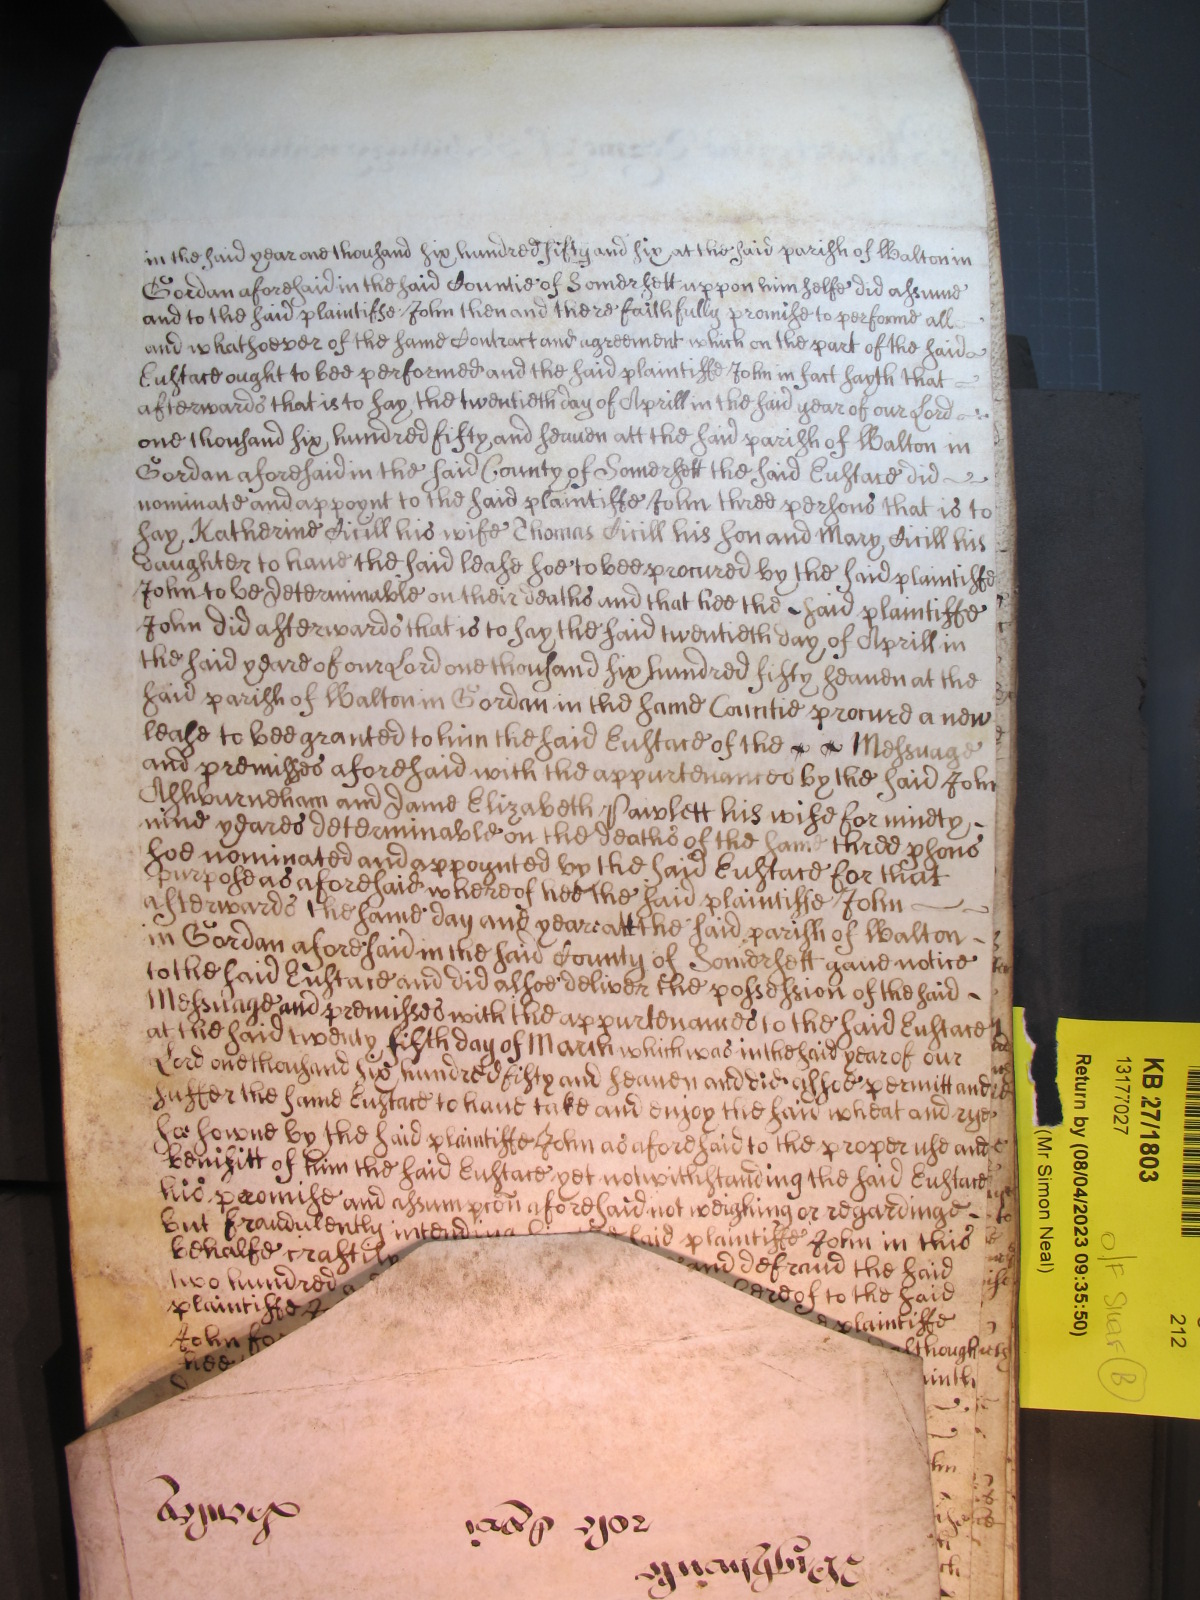 in the said year one thousand six hundred fifty and six at the said parish of Walton in
Gordan aforesaid in the said Countie of Somersett uppon him selfe did assume
and to the said plaintiffe John then and there faithfully promise to performe all
and whatsoever of the same Contract and agreement which on the part of the said
Eustace ought to bee performed and the said plaintiffe John in fact sayth that
afterwards that is to say the twentieth day of Aprill in the said year of our Lord
one thousand six hundred fifty and seaven att the said parish of Walton in
Gordan aforesaid in the said County of Somersett the said Eustace did
nominate and appoynt to the said plaintiffe John three persons that is to
say Katherine Sicill his wife Thomas Sicill his son and Mary Sicill his
daughter to have the said lease soe to bee procured by the said plaintiffe
John to be determinable on their deaths and that hee the said plaintiffe
John did afterwards that is to say the said twentieth day of Aprill in
the said yeare of our Lord one thousand six hundred fifty seaven at the
said parish of Walton in Gordan in the same Countie procure a new
lease to bee granted to him the said Eustace of the Messuage
and premisses aforesaid with the appurtenances by the said John
Ashburneham and Dame Elizabeth Pawlett his wife for ninety
nine yeares determinable on the deaths of the same three psons
soe nominated and appoynted by the said Eustace for that
purpose as aforesaid whereof hee the said plaintiffe John
afterwards the same day and yeare att the said parish of Walton
in Gordan aforesaid in the said County of Somersett gave notice
to the said Eustace and did alsoe deliver the possession of the said
Messuage and premisses with the appurtenances to the said Eustace
at the said twenty fifth day of March which was in the said year of our
Lord one thousand six hundred fifty and seaven and did alsoe permitt and
suffer the same Eustace to have take and enjoy the said wheat and rye
soe sowne by the said plaintiffe John as aforesaid to the proper use and
benifitt of him the said Eustace yet notwithstanding the said Eustace
his promise and assumpcon aforesaid not weighing or regardinge
but fraudulently intending the said plaintiffe John in this
behalfe craftily and defraud the said
two hundred thereof to the said
plaintiffe plaintiffe
John for although
hee
KB 27/1803
13177027
Return by (08/04/2023 09:35:50)
(Mr Simon Neal)
212
O/F Snaf B